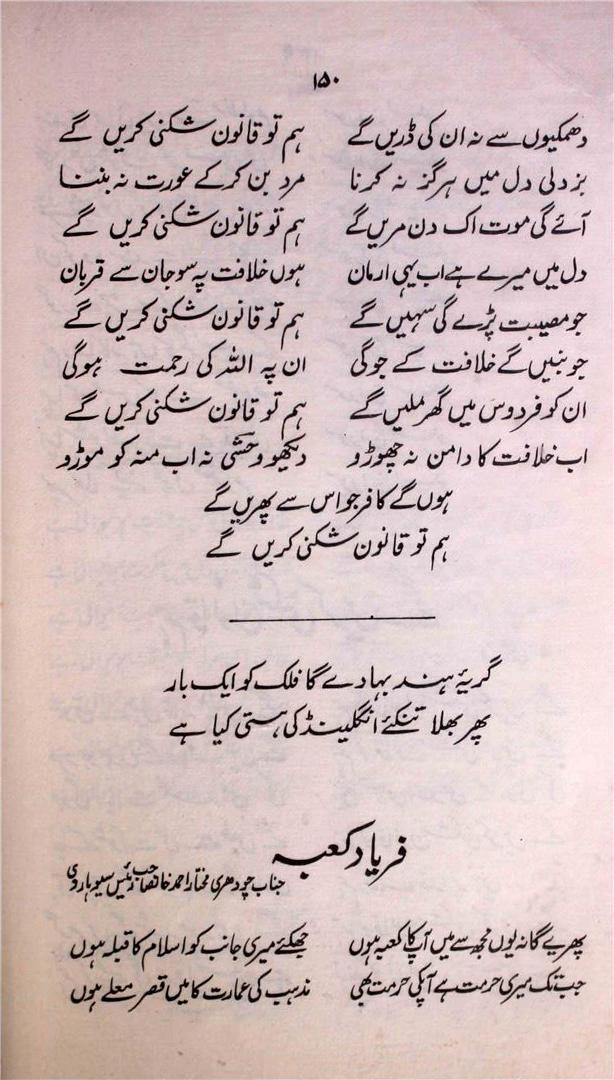 ۱۵۰
دھمکیوں سے نہ ان کی ڈریں گے ہم تو قانون شکنی کریں گے
بزدلی دل میں ہرگز نہ کرنا مرد بن کر کے عورت نہ بننا
آئے گی موت اک دن مریں گے ہم تو قانون شکنی کریں گے
دل میں میرے ہے اب یہی ارمان ہوں خلافت پہ سو جان سے قربان
جو مصیبت پڑے گی سہیں گے ہم تو قانون شکنی کریں گے
جو بنیں گے خلافت کے جوگی ان پہ اللہ کی رحمت ہوگی
ان کو فردوس میں گھر ملیں گے ہم تو قانون شکنی کریں گے
اب خلافت کا دامن نہ چھوڑو دیکھو وحشی نہ اب منہ کو موڑو
ہوں گے کافر جو اس سے پھریں گے
ہم تو قانون شکنی کریں گے
گریۂ ہند بہا دے گا فلک کو ایک بار
پھر بھلا تنکئے انگلینڈ کی ہستی کیا ہے
فریاد کعبہ
جناب چودھری مختار احمد خانصاحب رئیس سیوہاروی
پھریے گا نہ یوں مجھ سے میں آپ کا کعبہ ہوں جھکئے میری جانب کو اسلام کا قبلہ ہوں
جب تک میری حرمت ہے آپکی حرمت بھی مذہب کی عمارت کا میں قصر معلے ہوں